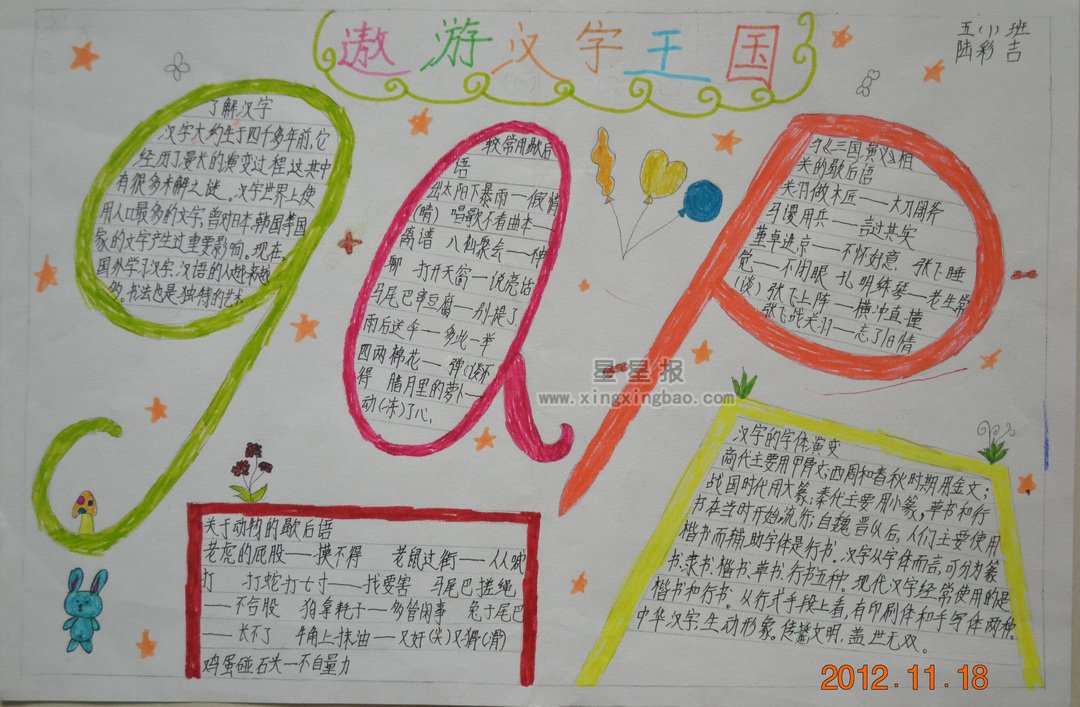 遨游汉字王国
五(1)班
陆彩吉
了解汉字
汉字大约生于四千多年前,它
经历了漫长的演变过程,这其中
有很多未解之谜。汉字世界上使
用人口最多的文字,曾对日本、韩国等国
家的文字产生过重要影响。现在,
国外学习汉字、汉语的人越来越
多。书法也是独特的艺术
较常用歇后
语
出太阳下暴雨——假情
(晴) 唱歌不看曲本——
离谱 八仙聚会——神
聊 打开天窗—说亮话
马尾巴串豆腐——别提了
雨后送伞——多此一举
四两棉花——弹(谈)不
得 腊月里的萝卜—
动(冻)了心
与《三国演义》相
关的歇后语
关羽做木匠——大刀阔斧
马谡用兵——言过其实
董卓进京——不怀好意 张飞睡
觉——不闭眼 孔明练琴—老生常
(谈) 张飞上阵——横冲直撞
张飞战关羽——忘了旧情
关于动物的歇后语
老虎的屁股——摸不得 老鼠过街——人人喊
打 打蛇打七寸——找要害 马尾巴搓绳
——不合股 狗拿耗子——多管闲事 兔子尾巴
——长不了 牛角上抹油——又奸(尖)又猾(滑)
鸡蛋碰石头—不自量力
汉字的字体演变
商代主要用甲骨文;西周和春秋时期用金文;
战国时代用大篆;秦代主要用小篆,草书和行
书在当时开始流行;自魏晋以后,人们主要使用
楷书而辅助字体是行书。汉字从字体而言,可分为篆
书、隶书、楷书、草书、行书五种。现代汉字经常使用的是
楷书和行书。从行式手段上看,有印刷体和手写体两种。
中华汉字,生动形象。传播文明,盖世无双。
星星报
www.xingxingbao.com
2012.11.18